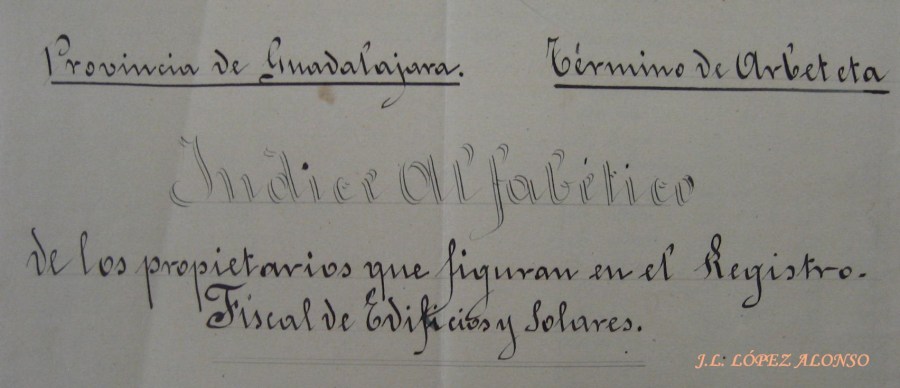 Provincia de Guadalajara. Término de Arbeteta
Indice Alfabético
de los propietarios que figuran en el Registro.
Fiscal de Edificios y Solares.
J.L. LÓPEZ ALONSO